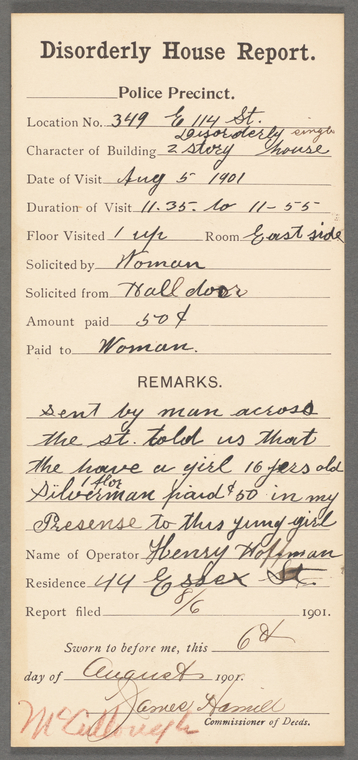 Disorderly House Report.
Police Precinct.
Location No. 349 E 114 St.
Disorderly single
Character of Building 2 story house
Date of Visit Aug 5 1901
Duration of Visit 11.35. to 11-55
Floor Visited 1 up Room East side
Solicited by Woman
Solicited from Hall door
Amount paid 50¢
Paid to Woman.
REMARKS.
Sent by man across
the st. told us that
the have a girl 16 yers old
1 flor
Silverman paid $50 in my
Presense to this yung girl
Name of Operator Henry Hoffman
Residence 44 Essex St.
Report filed 8/6 1901.
Sworn to before me, this 6th
day of August 1901.
James Hamill
Commissioner of Deeds.
McCullough